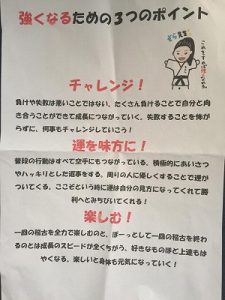 強くなるための3つのポイント
チャレンジ！
負けや失敗は悪いことではない。たくさん負けることで自分と向
き合うことができて成長につながっていく。失敗することを怖が
らずに、何事もチャレンジしていこう！
運を味方に！
普段の行動はすべて空手にもつながっている。積極的にあいさつ
やハッキリとした返事をする、周りの人に優しくすることで運が
ついてくる。ここぞという時に運は自分の見方になってくれて勝
利へとみちびいてくれる！
楽しむ！
一回の稽古を全力で楽しむのと、ぼーっとして一回の稽古を終わ
るのとは成長のスピードが全くちがう。好きなものほど上達もは
やくなる。楽しいと身体も元気になっていく！